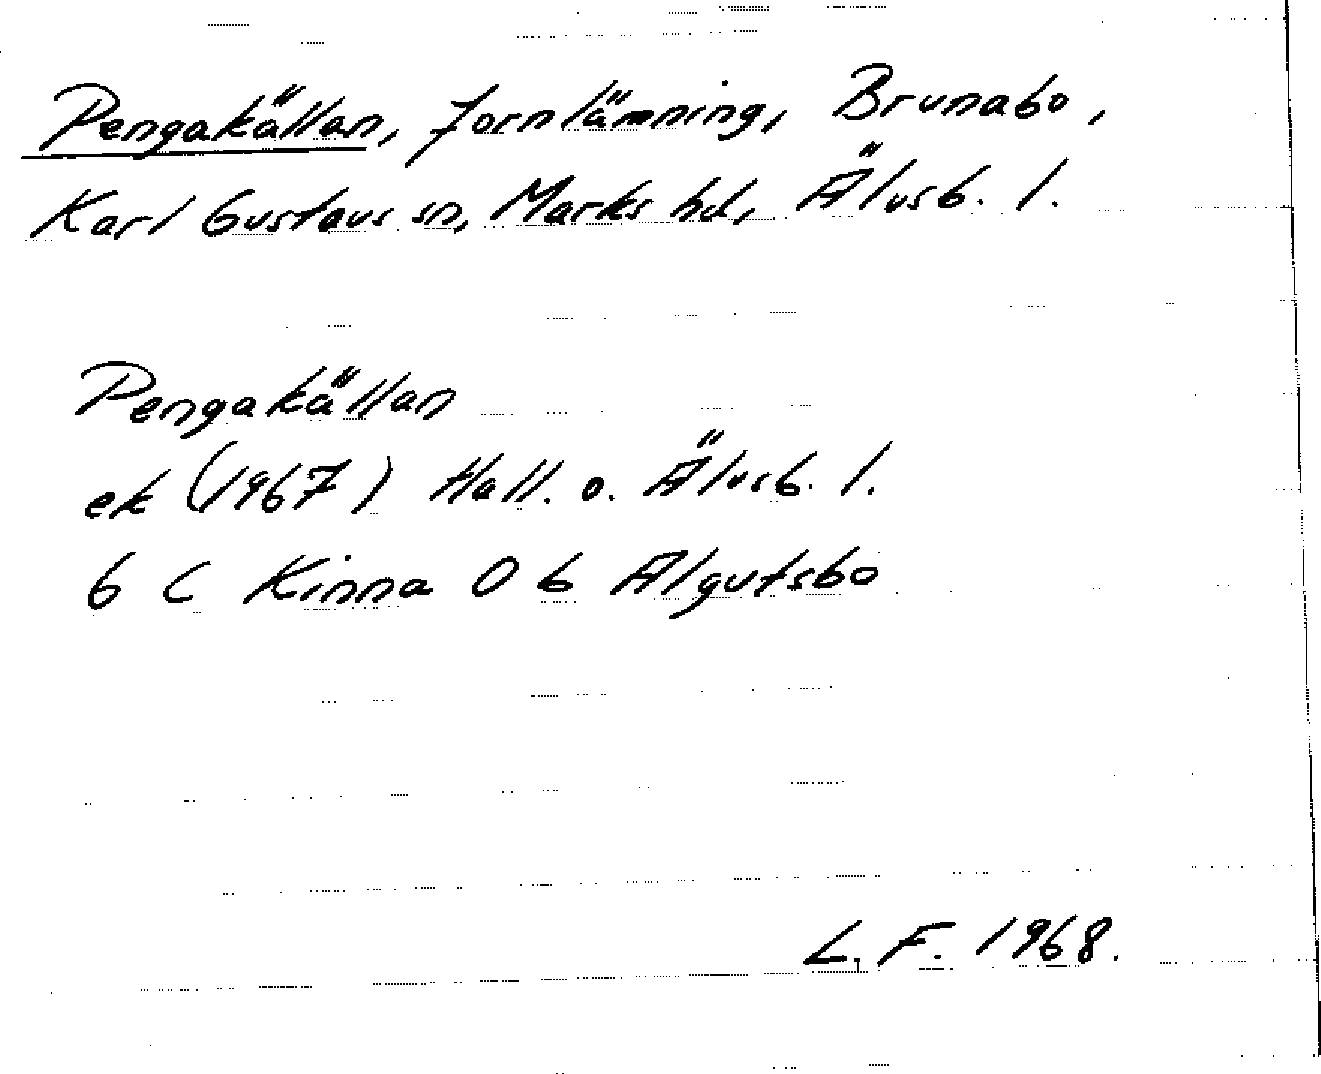 Pengakällan, fornlämning, Brunabo,
Karl Gustavs sn, Marks hd, Älvsb. l.
Pengakällan
ek (1967) Hall. o. Älvsb. l.
6 C Kinna 0 b Algutsbo
L. F. 1968.